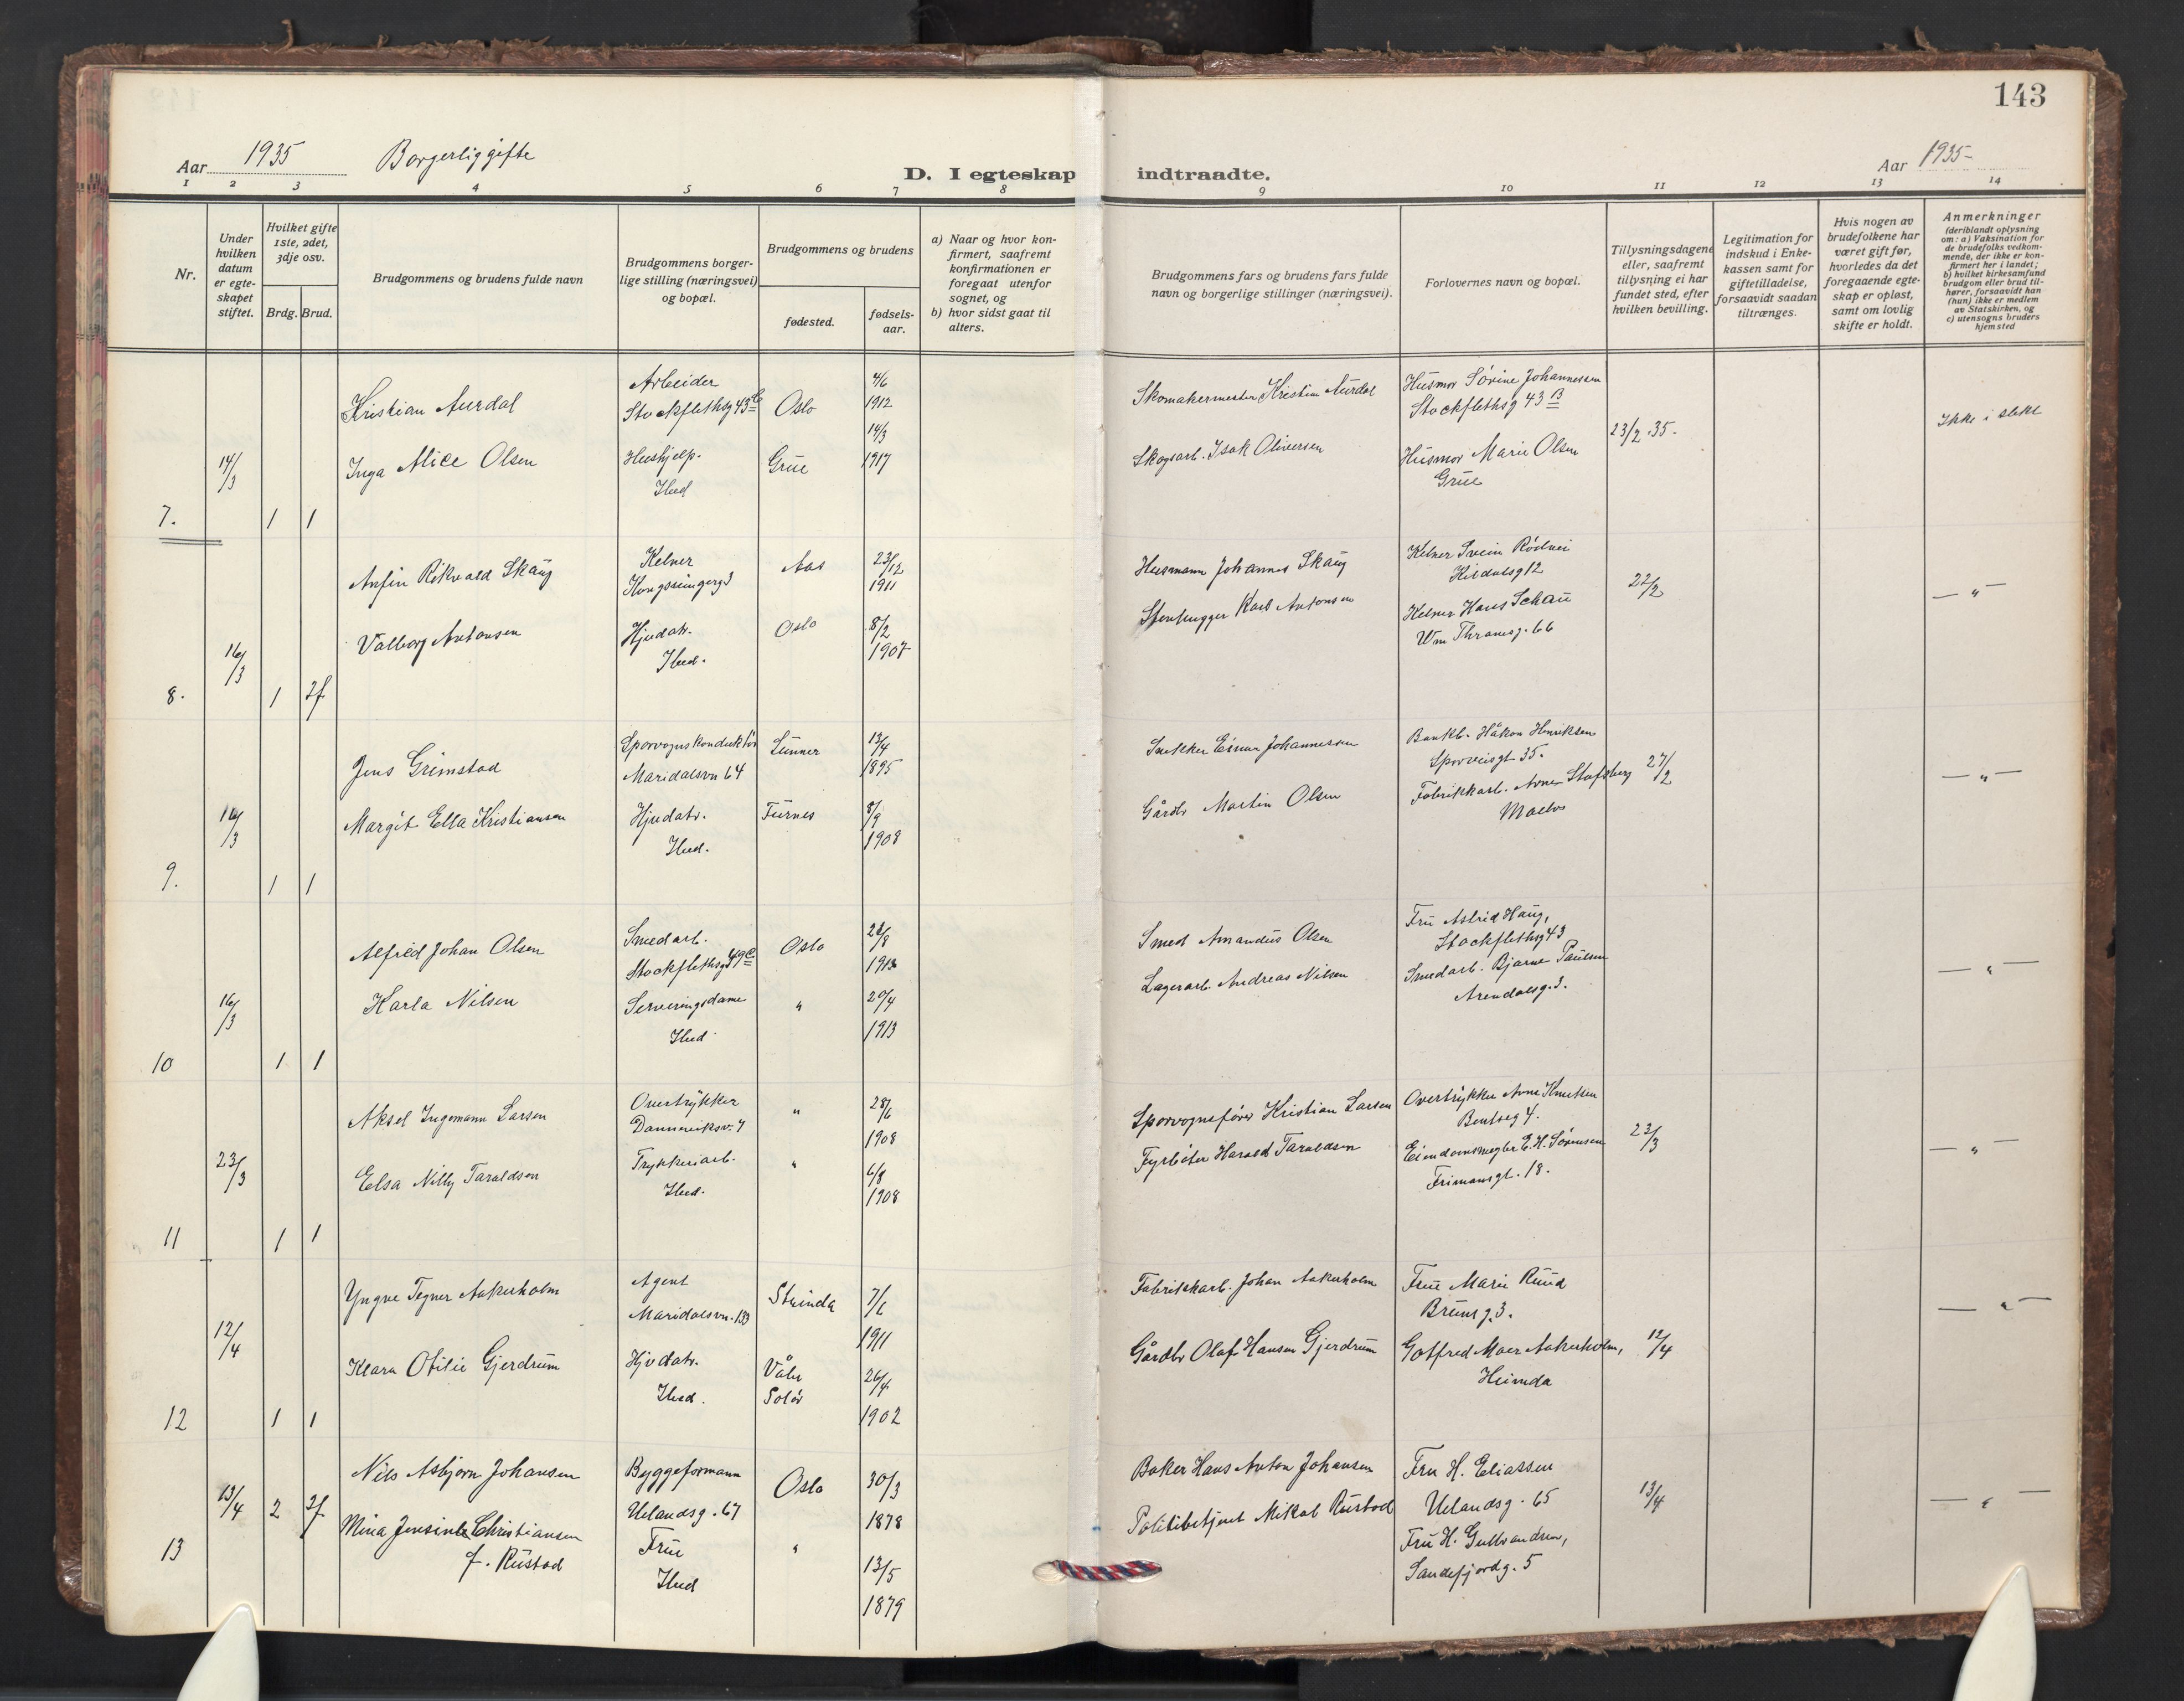 143
Aar 1935 Borgerlig gifte
D. I egteskap indtraadte.
Aar 1935-
1 2 3 4 5 6 7 8 9 10 11 12 13 14
Nr.
Under hvilken datum er egte-skapet stiftet.
Hvilket gifte 1ste, 2det, 3dje osv.
Brdg. Brud.
Brudgommens og brudens fulde navn
Brudgommens borger-lige stilling (næringsvei) og bopæl.
Brudgommens og brudens
fødested.
fødsels-aar.
a) Naar og hvor kon-firmert, saafremt konfirmationen er foregaat utenfor sognet, og
b) hvor sidst gaat til alters.
Brudgommens fars og brudens fars fulde navn og borgerlige stillinger (næringsvei).
Forlovernes navn og bopæl.
Tillysningsdagene eller, saafremt tillysning ei har fundet sted, efter hvilken bevilling.
Legitimation for indskud i Enke-kassen samt for giftetilladelse, forsaavidt saadan tiltrænges.
Hvis nogen av brudefolkene har været gift før, hvorledes da det foregaaende egte-skap er opløst, samt om lovlig skifte er holdt.
Anmerkninger (deriblandt oplysning om: a) Vaksination for de brudefolks vedkom-mende, der ikke er kon-firmert her i landet; b) hvilket kirkesamfund brudgom eller brud til-hører, forsaavidt han (hun) ikke er medlem av Statskirken, og c) utensogns bruders hjemsted
7. 14/3 1 1
Kristian Aurdal
Arbeider
Stockflethsg 43 C
Oslo
4/6 1912
Skomakermester Kristian Aurdal
Husmor Sørine Johannessen
Stockflethsg 43 B
23/2 .35.
Ikke i slekt
Inga Alice Olsen
Hushjelp.
Ibid
Grue
14/3 1917
Skogsarb. Isak Oliversen
Husmor Marie Olsen
Grue
8. 16/3 1 2f
Anfin Rikvald Skaug
Kelner
Kongsvingerg 3
Aas
23/12 1911
Husmann Johannes Skaug
Kelner Svein Rødvei
12
22/2
— " —
Valborg Antonsen
Hjudatr.
Ibid.
Oslo
8/2 1907
Stenhugger Karl Antonsen
Kelner Hans Schau
Wm Thranesg. 66
9. 16/3 1 1
Jens Grimstad
Sporvognskonduktør
Maridalsvn 64
Lunner
13/4 1895
Snekker Einar Johannessen
Bankb. Håkon Henriksen
Sporveisgt 35.
27/2
— " —
Margit Ella Kristiansen
Hjudatr.
Ibid.
Furnes
8/9 1908
Gårdbr Martin Olsen
Fabrikkarb. Arne Stafsberg
Maelvs
10 16/3 1 1
Alfred Johan Olsen
Smedarb.
Stockflethsg 49 C
Oslo
22/8 1913
Smed Amandus Olsen
Fru Astrid Haug,
Stockflethsg 43
— " —
Karla Nilsen
Serveringsdame
Ibid
"
20/4 1913
Lagerarb. Andreas Nilsen
Smedarb. Bjarne Paulsen
Arendalsg. 3.
11 23/3 1 1
Aksel Ingemann Larsen
Overtrykker
Danneviksv. 7
"
28/6 1908
Sporvognsfører Kristian Larsen
Overtrykker Arne Knutsen
Bentseg 4.
23/3
— " —
Elsa Nilly Taraldsen
Trykkeriarb.
Ibid.
"
6/8 1908
Fyrbøter Harald Taraldsen
Eiendomsmegler E. H. Sørensen
Frimansgt. 18.
12 12/4 1 1
Yngve Tegner Aakerholm
Agent
Maridalsvn. 133
Strinda
7/6 1911
Fabrikkarb. Johan Aakerholm
Frue Marie Ruud
Brunsg 3.
— " —
Klara Otilie Gjerdrum
Hjudatr.
Ibid.
Våler
Solør
26/4 1902
Gårdbr Olaf Hansen Gjerdrum
Gotfred Moer Aakerholm,
Heimda
12/4
13 13/4 2 2f
Nils Asbjørn Johansen
Byggeformann
Uelandsg. 67
Oslo
30/3 1878
Baker Hans Anton Johansen
Fru H. Eliassen
Uelandsg. 65
13/4
— " —
Mina Jensine Christiansen
f. Rustad
Frue
Ibid
"
13/5 1879
Politibetjent Mikal Rustad
Fru H. Gulbrandsen,
Sandefjordg. 5